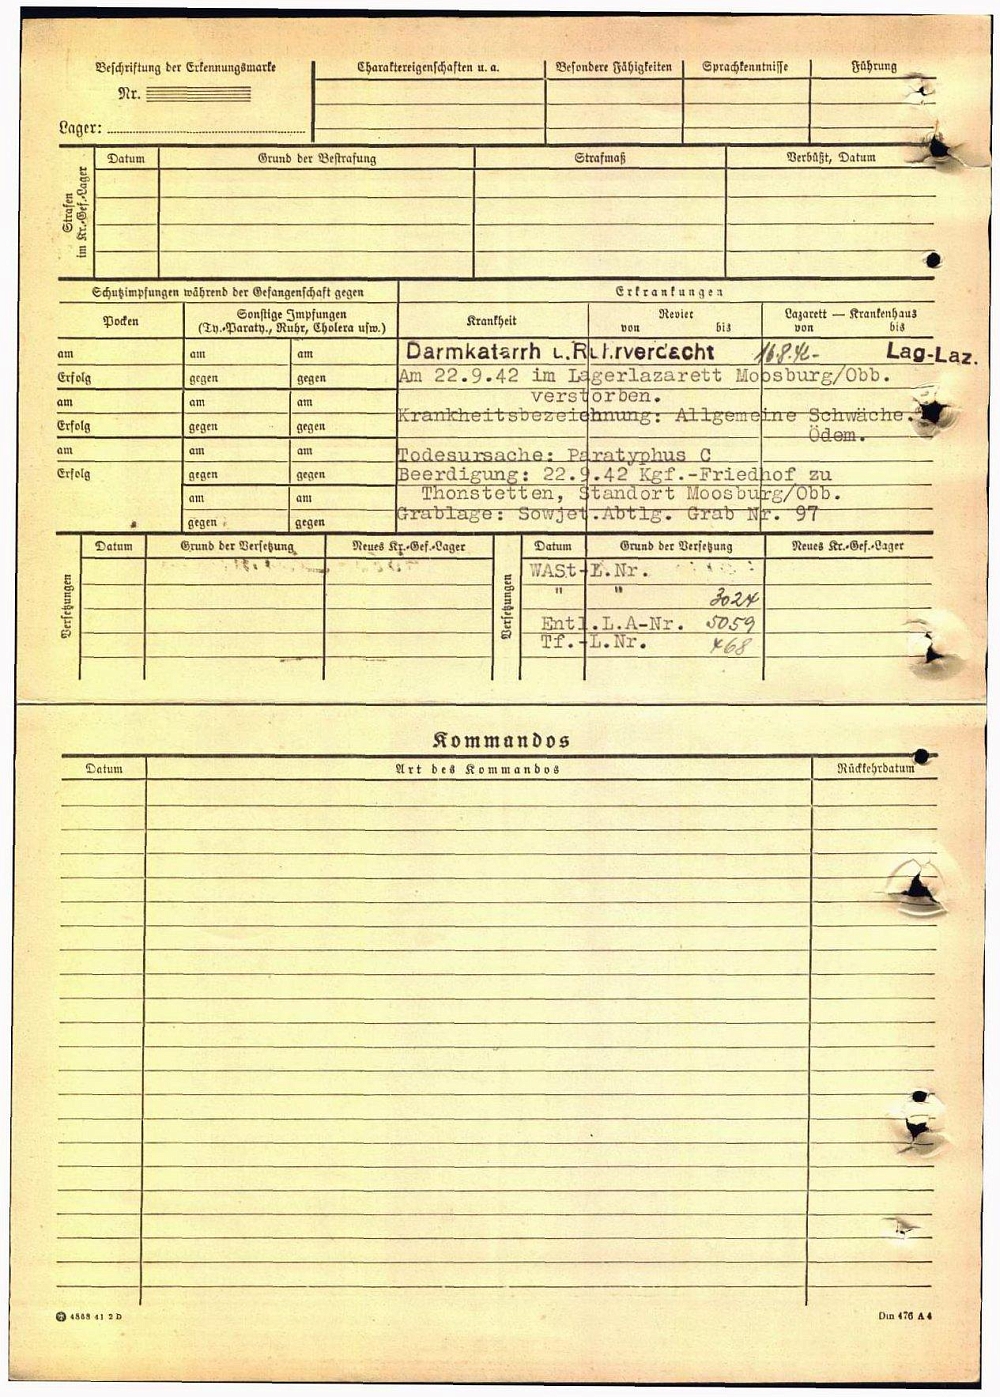 Beschriftung der Erkennungsmarke
Nr.
Lager:
Charaktereigenschaften u. a.
Besondere Fähigkeiten
Sprachkenntnisse
Führung
Strafen im Kr.-Gef.-Lager
Datum
Grund der Bestrafung
Strafmaß
Verbüßt, Datum
Schutzimpfungen während der Gefangenschaft gegen
Erkrankungen
Pocken
Sonstige Impfungen
(Ty.-Paraty., Ruhr, Cholera usw.)
Krankheit
Revier
von bis
Lazarett — Krankenhaus
von bis
am am am
Erfolg gegen gegen
am am am
Erfolg gegen gegen
am am am
Erfolg gegen gegen
am am
gegen gegen
Darmkatarrh u. Ruhrverdacht 16.8.42- Lag-Laz.
Am 22.9.42 im Lagerlazarett Moosburg/Obb.
verstorben.
Krankheitsbezeichnung: Allgemeine Schwäche.
Ödem.
Todesursache: Paratyphus C
Beerdigung: 22.9.42 Kgf.-Friedhof zu
Thonstetten, Standort Moosburg/Obb.
Grablage: Sowjet.Abtlg. Grab Nr. 97
Versetzungen
Datum
Grund der Versetzung
Neues Kr.-Gef.-Lager
Versetzungen
Datum
Grund der Versetzung
Neues Kr.-Gef.-Lager
WASt-E.Nr.
" " 3024
Entl.L.A-Nr. 5059
Tf.-L.Nr. 468
Kommandos
Datum
Art des Kommandos
Rückkehrdatum
4868 41 2 D
Din 476 A 4